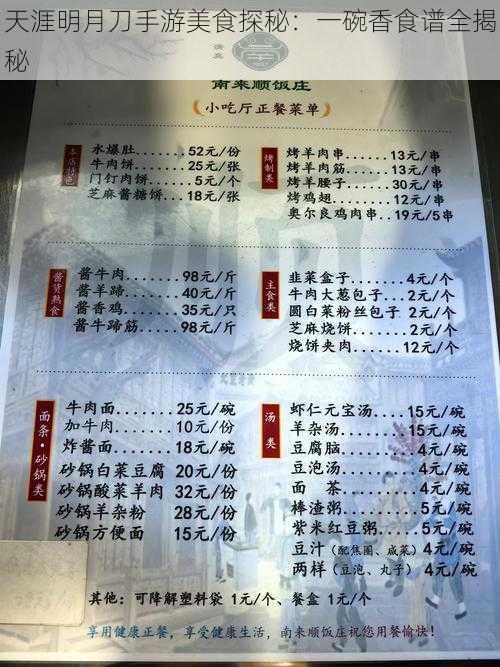 天涯明月刀手游美食探秘：一碗香食谱全揭
秘
清真
南来顺饭庄
（小吃厅正餐菜单）
本店特色
水爆肚.......52元/份
牛肉饼.......25元/张
门钉肉饼......5元/个
芝麻酱糖饼...18元/张
烤制类
烤羊肉串.......13元/串
烤羊肉筋.......13元/串
烤羊腰子.......30元/串
烤鸡翅.........12元/串
奥尔良鸡肉串..19元/5串
酱货熟食
酱牛肉.......98元/斤
酱羊蹄.......40元/斤
酱香鸡.......35元/只
酱牛蹄筋.....98元/斤
主食类
韭菜盒子.......4元/个
牛肉大葱包子...2元/个
圆白菜粉丝包子 2元/个
芝麻烧饼.......2元/个
烧饼夹肉......12元/个
面条·砂锅类
牛肉面.......25元/碗
加牛肉.......10元/份
炸酱面.......18元/碗
砂锅白菜豆腐 20元/份
砂锅酸菜羊肉 32元/份
砂锅羊杂粉...28元/份
砂锅方便面...15元/份
汤类
虾仁元宝汤....15元/碗
羊杂汤........15元/碗
豆腐脑.........4元/碗
豆泡汤.........4元/碗
面　茶.........4元/碗
棒渣粥.........5元/碗
紫米红豆粥.....5元/碗
豆汁（配焦圈、咸菜）4元/碗
两样（豆泡、丸子）4元/碗
其他：可降解塑料袋 1元/个、餐盒 1元/个
享用健康正餐，享受健康生活，南来顺饭庄祝您用餐愉快！